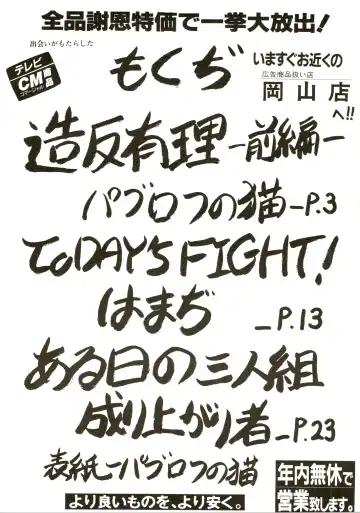 全品謝恩特価で一挙大放出!
出会いがもたらした
テレビ
CM商品
コマーシャル
もくぢ
いますぐお近くの
広告商品扱い店
岡山店
へ!!
造反有理-前編-
パブロフの猫-P.3
TODAY'S FIGHT!
はまぢ -P.13
ある日の三人組
成り上がり者-P.23
表紙-パブロフの猫
年内無休で
営業致します。
より良いものを、より安く。